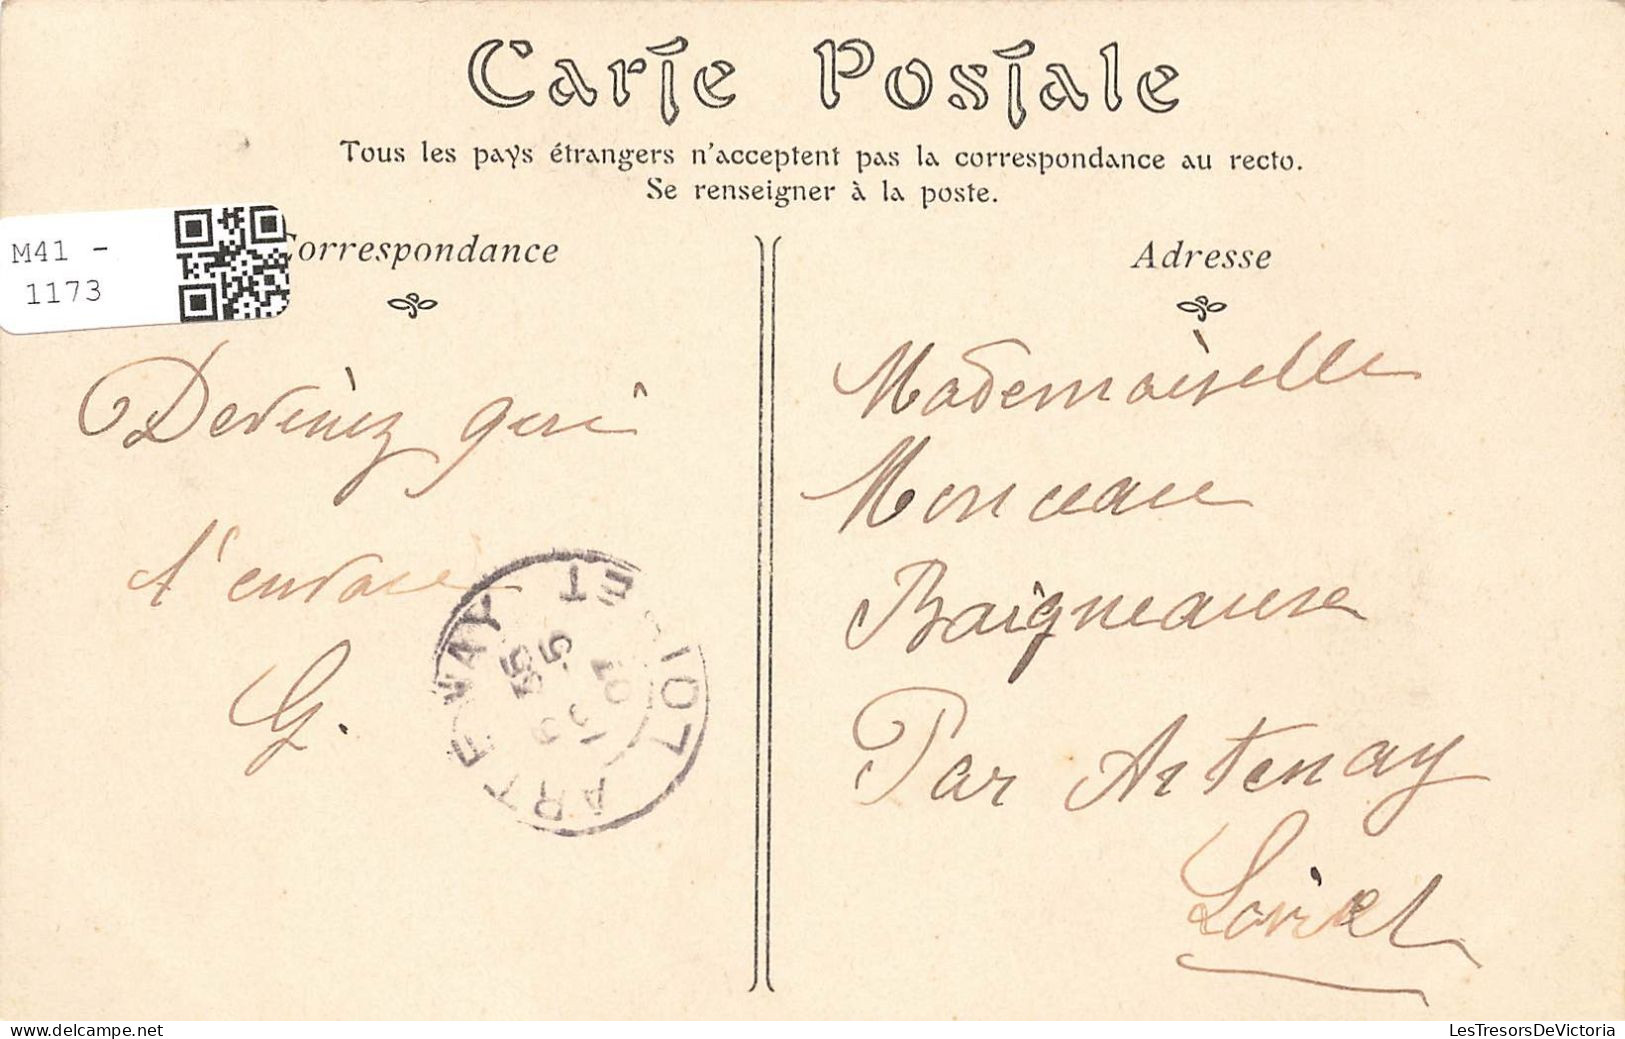 Carte Postale
Tous les pays étrangers n'acceptent pas la correspondance au recto.
Se renseigner à la poste.
M41 -
1173
Correspondance
Devinez qui
t'envoie
G.
ARTENAY
LOIRET
5-5
07
Adresse
Mademoiselle
Monceau
Baigneaux
Par Artenay
Loiret
LesTresorsDeVictoria.com